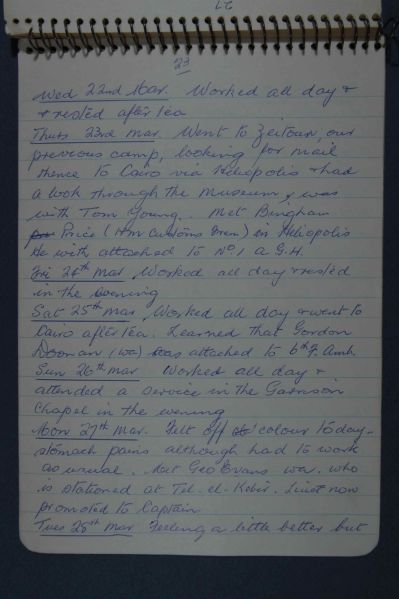 23
Wed 22nd Mar. Worked all day +
+ rested after tea
Thurs 23rd Mar. Went to Zeitoun, our
previous camp, looking for mail
thence to Cairo via Heliopolis + had
a look through the Museum, was
with Tom Young. Met Bingham
Price (HM Customs Frem) in Heliopolis
He with attached to No. 1 A G.H.
Fri 24th Mar, Worked all day + rested
in the evening
Sat 25th Mar, Worked all day + went to
Cairo after tea. Learned that Gordon
(WA) was attached to 6th F. Amb.
Sun 26th Mar Worked all day +
attended a service in the Garrison
Chapel in the evening
Mon 27th Mar. Felt off colour today -
stomach pains although had to work
as usual. Met Geo Evans was. who
is stationed at Tel-el-Kebir. Lieut now
promoted to Captain
Tues 28th Mar Feeling a little better but